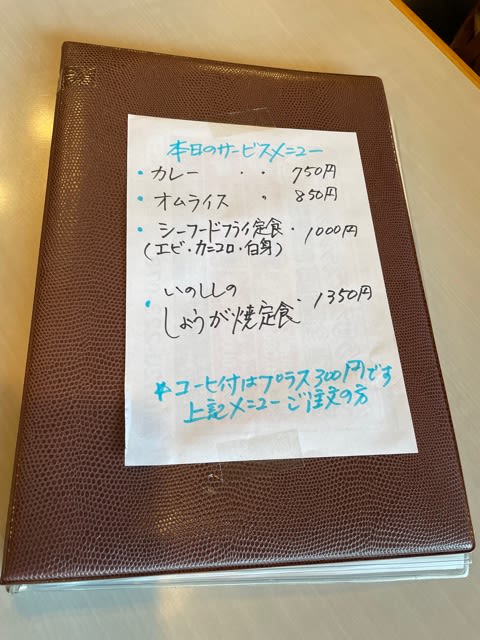 本日のサービスメニュー
・カレー ・・ 750円
・オムライス 〃 850円
・シーフードフライ定食・1000円
(エビ・カニコロ・白身)
・いのししの
しょうが焼定食・1350円
*コーヒ付はプラス300円です
上記メニューご注文の方